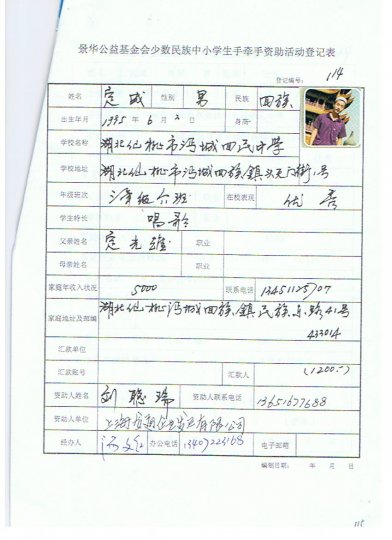 景华公益基金会少数民族中小学生手牵手资助活动登记表
登记编号: 114
姓名 定威 性别 男 民族 回族
出生年月 1995年6月2日 身高
学校名称 湖北仙桃市沔城回民中学
学校地址 湖北仙桃市沔城回族镇 街1号
年级班次 班 在校表现 优秀
学生特长 唱歌
父亲姓名 定光雄 职业
母亲姓名 职业
家庭年收入状况 5000 联系电话 13451125707
家庭地址及邮编 湖北仙桃沔城回族镇民族东路41号
433014
汇款单位
汇款账号 汇款人 (1200.-)
资助人姓名 刘聪瑞 资助人联系电话 13651677688
资助人单位 上海 有限公司
经办人 办公电话 13407223168 电子邮箱
编制日期: 年 月 日
115